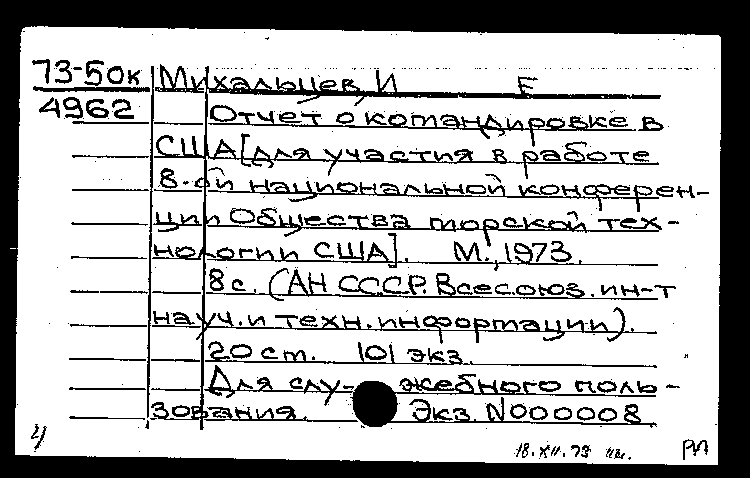 73-50к Михальцев, И Е
4962 Отчет о командировке в
США [для участия в работе
8-ой национальной конферен-
ции Общества морской тех-
нологии США]. М., 1973.
8 с. (АН СССР. Всесоюз. ин-т
науч. и техн. информации).
20 cm. 101 экз.
Для слу- жебного поль-
зования. Экз. N000008
18.XII.73